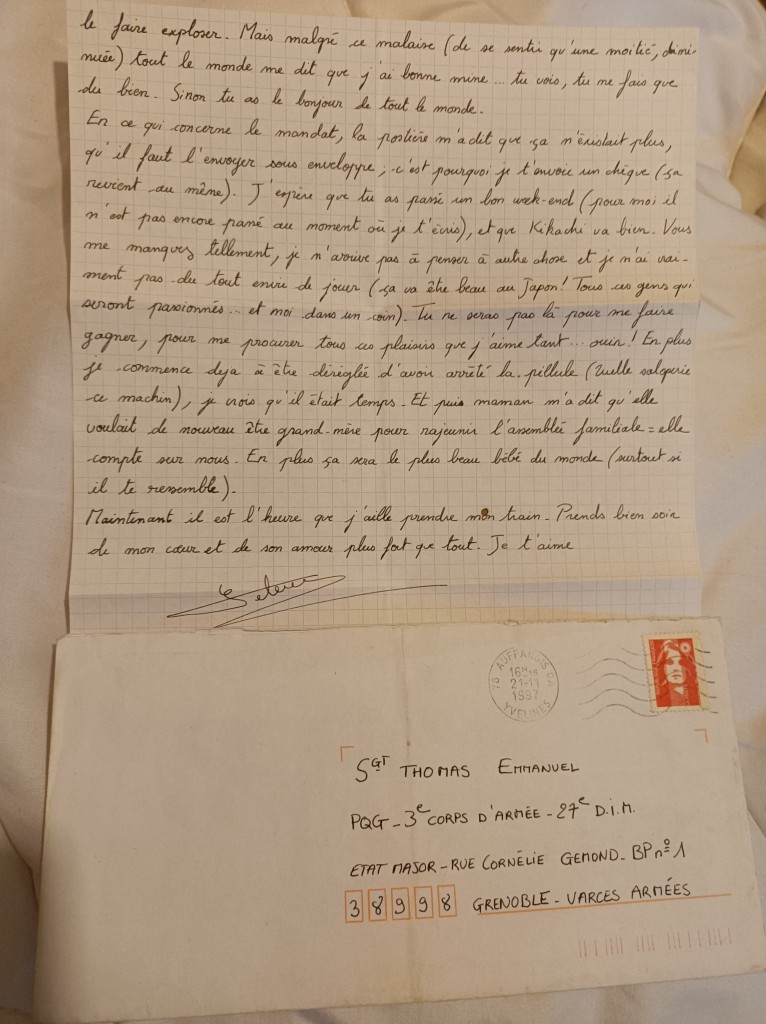 le faire exploser. Mais malgré ce malaise (de se sentir qu'une moitié, dimi-
nuée) tout le monde me dit que j'ai bonne mine... tu vois, tu me fais que
du bien. Sinon tu as le bonjour de tout le monde.
En ce qui concerne le mandat, la postière m'a dit que ça n'existait plus,
qu'il faut l'envoyer sous enveloppe ; c'est pourquoi je t'envoie un chèque (ça
revient au même). J'espère que tu as passé un bon week-end (pour moi il
n'est pas encore passé au moment où je t'écris), et que Kikachi va bien. Vous
me manquez tellement, je n'arrive pas à penser à autre chose et je n'ai vrai-
ment pas du tout envie de jouer (ça va être beau au Japon! Tous ces gens qui
seront passionnés... et moi dans un coin). Tu ne seras pas là pour me faire
gagner, pour me procurer tous ces plaisirs que j'aime tant... ouin! En plus
je commence deja à être déréglée d'avoir arrêté la pillule (Quelle saloperie
ce machin), je crois qu'il était temps. Et puis maman m'a dit qu'elle
voulait de nouveau être grand-mère pour rajeunir l'assemblée familiale = elle
compte sur nous. En plus ça sera le plus beau bébé du monde (surtout si
il te ressemble).
Maintenant il est l'heure que j'aille prendre mon train. Prends bien soin
de mon cœur et de son amour plus fort que tout. Je t'aime
78 AUFFARGIS
16H
21-11
1997
YVELINES
SGT THOMAS EMMANUEL
PQG - 3e CORPS D'ARMÉE - 27e D.I.M.
ETAT MAJOR - RUE CORNÉLIE GEMOND - BP n° 1
38998 GRENOBLE - VARCES ARMÉES